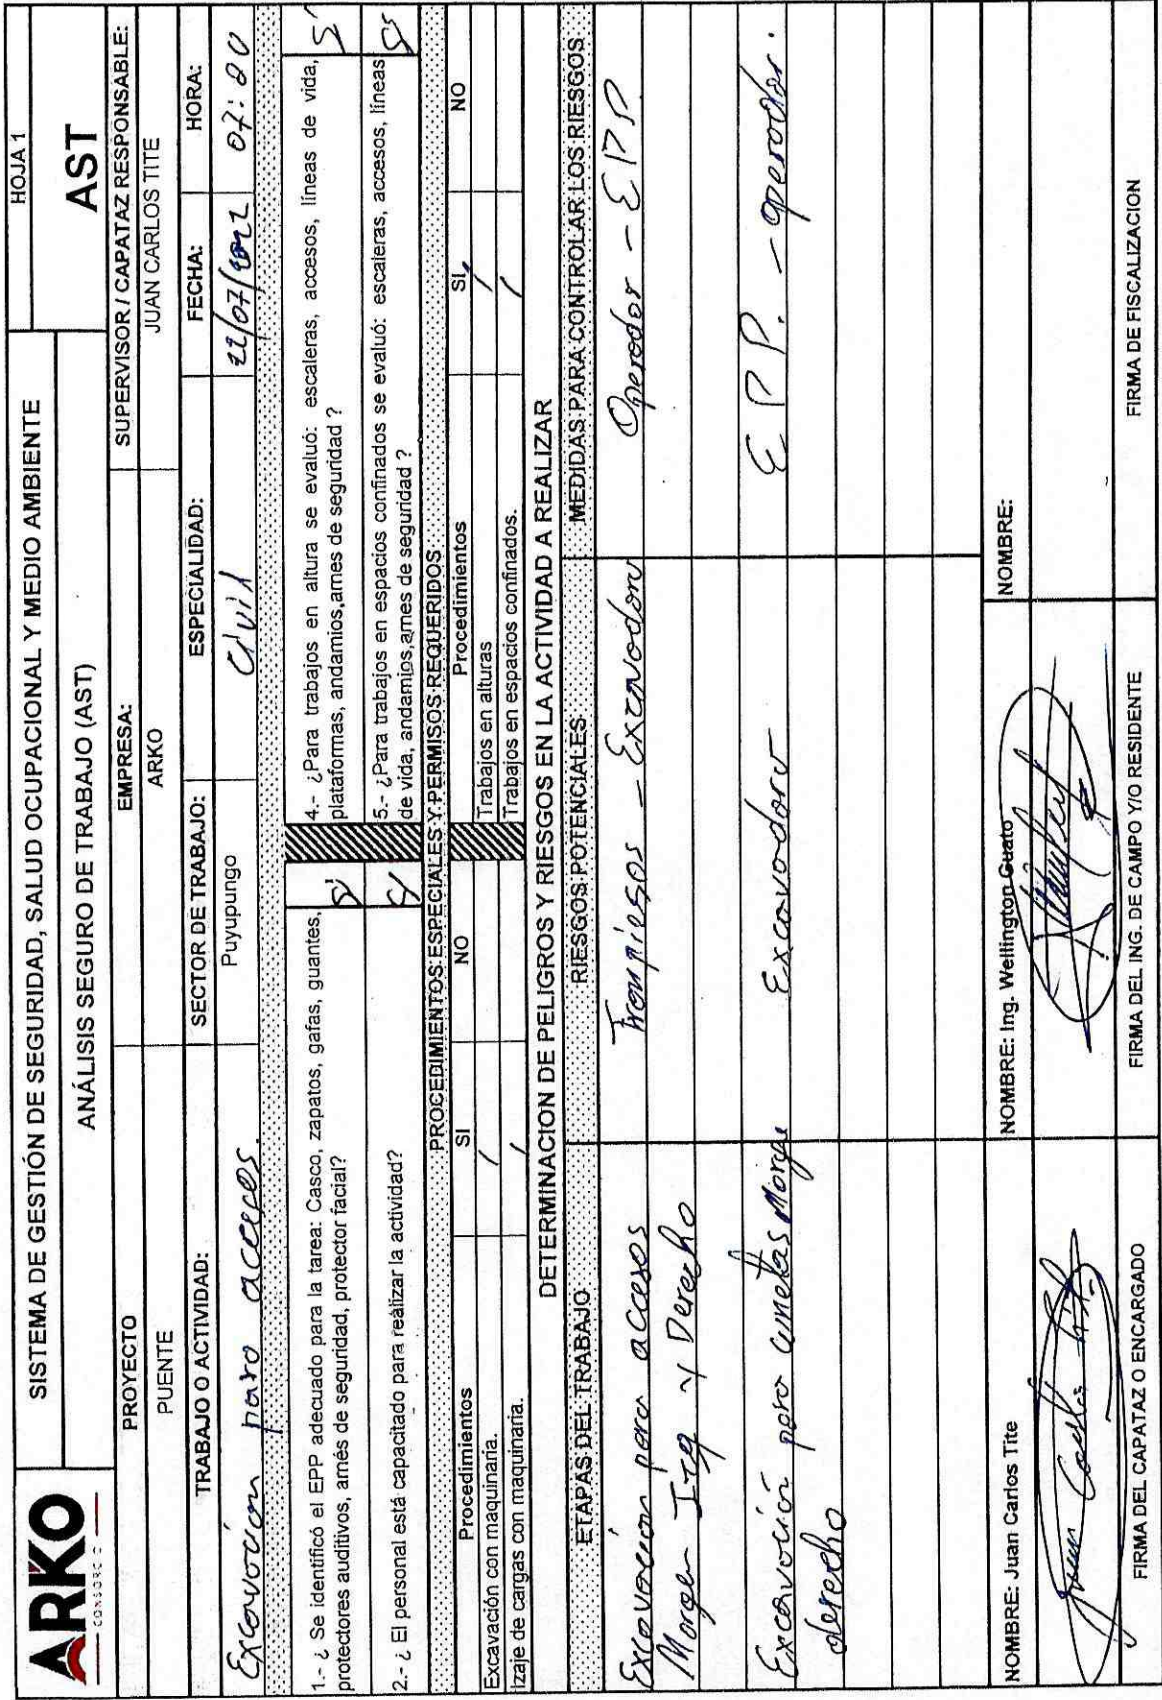 ARKO
CONSORCIO
SISTEMA DE GESTIÓN DE SEGURIDAD, SALUD OCUPACIONAL Y MEDIO AMBIENTE
HOJA 1
ANÁLISIS SEGURO DE TRABAJO (AST)
AST
PROYECTO
EMPRESA:
SUPERVISOR / CAPATAZ RESPONSABLE:
PUENTE
ARKO
JUAN CARLOS TITE
TRABAJO O ACTIVIDAD:
SECTOR DE TRABAJO:
ESPECIALIDAD:
FECHA:
HORA:
Excavación para acceces.
Puyupungo
Civil
22/07/2022
07:20
1.- ¿ Se identificó el EPP adecuado para la tarea: Casco, zapatos, gafas, guantes,
protectores auditivos, arnés de seguridad, protector facial?
Si
4.- ¿Para trabajos en altura se evaluó: escaleras, accesos, líneas de vida,
plataformas, andamios,arnes de seguridad ?
Si
2.- ¿ El personal está capacitado para realizar la actividad?
Si
5.- ¿Para trabajos en espacios confinados se evaluó: escaleras, accesos, líneas
de vida, andamios,arnes de seguridad ?
Si
PROCEDIMIENTOS ESPECIALES Y PERMISOS REQUERIDOS
Procedimientos
SI
NO
Procedimientos
SI
NO
Excavación con maquinaria.
/
Trabajos en alturas
/
Izaje de cargas con maquinaria.
/
Trabajos en espacios confinados.
/
DETERMINACION DE PELIGROS Y RIESGOS EN LA ACTIVIDAD A REALIZAR
ETAPAS DEL TRABAJO
RIESGOS POTENCIALES
MEDIDAS PARA CONTROLAR LOS RIESGOS
Excavación para accesos
Tropiesos - Excavadora
Operador - EPP
Margen Izq y Derecho
Excavación para cunetas Margen
Excavadora
EPP. - operador.
derecho
NOMBRE: Juan Carlos Tite
NOMBRE: Ing. Wellington Guato
NOMBRE:
Juan Carlos Tite
FIRMA DEL CAPATAZ O ENCARGADO
FIRMA DEL ING. DE CAMPO Y/O RESIDENTE
FIRMA DE FISCALIZACION